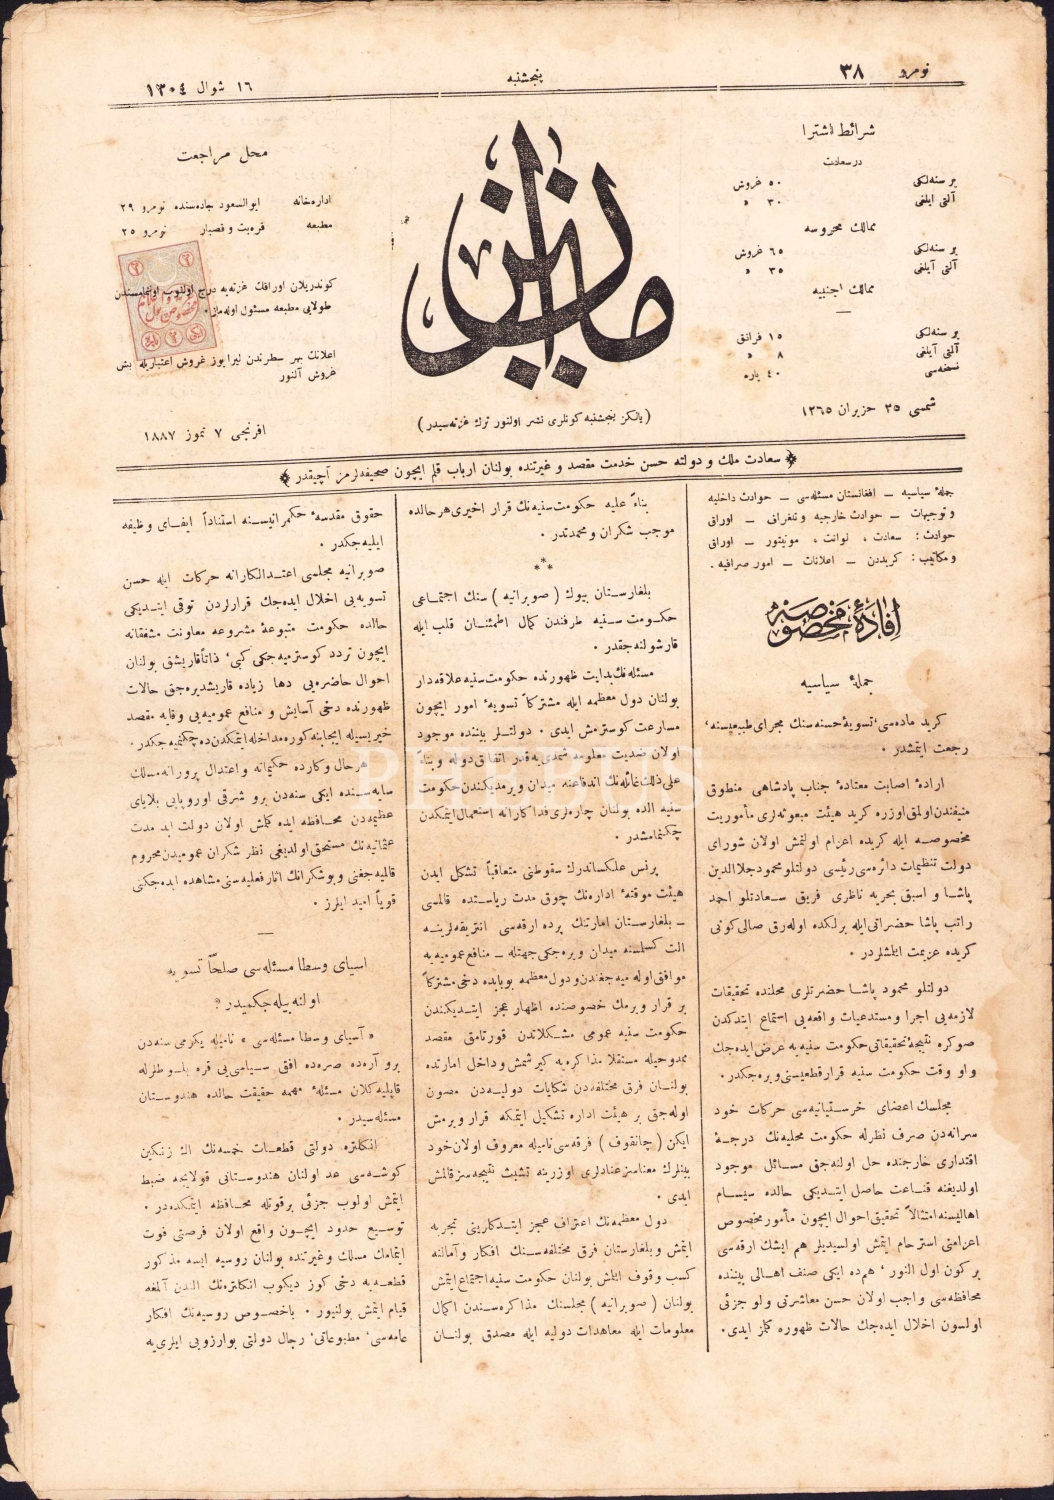 نومرو ٣٨
پنجشنبه
١٦ شوال ١٣٠٤
شرائط اشترا
در سعادت
بر سنه لكی ٥٠ غروش
آلتی ایلغی ٣٠ »
ممالك محروسه
بر سنه لكی ٦٥ غروش
آلتی آیلغی ٣٥ »
ممالك اجنبیه
بر سنه لكی ١٥ فرانق
آلتی آیلغی ٨ »
نسخه سی ٤٠ پاره
شمسی ٢٥ حزیران ١٢٦٥
(یالكز پنجشنبه كونلری نشر اولنور ترك غزته سیدر)
محل مراجعت
اداره خانه ابوالسعود جاده سنده نومرو ٢٩
مطبعه نومرو ٢٥
كوندریلان اوراقك غزته یه درج اولنوب اولنمامسندن
طولایی مطبعه مسئول اوله ماز.
اعلانك بهر سطرندن لیرا یوز غروش اعتباریله بش
غروش آلنور
افرنجی ٧ تموز ١٨٨٧
سعادت ملك و دولته حسن خدمت مقصد و غیرتنده بولنان ارباب قلم ایچون صحیفه لرمز آچیقدر
جملهٔ سیاسیه – افغانستان مسئله سی – حوادث داخلیه
و توجیهات – حوادث خارجیه و تلغرافی – اوراق
حوادث: سعادت، لوانت، مونیتور – اوراق
و مكاتیب: كریددن – اعلانات – امور صرافیه.
افادهٔ مخصوصه
جملهٔ سیاسیه
كرید ماده سی، تسویهٔ حسنه سنك مجرای طبیعیسنه،
رجعت ایتمشدر.
ارادهٔ اصابت معتادهٔ جناب پادشاهی منطوق
منیفندن اولمق اوزره كرید هیئت مبعوثه لری مأموریت
مخصوصه ایله كریده اعزام اولنمش اولان شورای
دولت تنظیمات دائره سی رئیسی دولتلو محمود جلاالدین
پاشا و اسبق بحریه ناظری فریق سعادتلو احمد
راتب پاشا حضراتی ایله برلكده اوله رق صالی كونی
كریده عزیمت ائلشلردر.
دولتلو محمود پاشا حضرتلری محلنده تحقیقات
لازمه یی اجرا و مستدعیات واقعه یی استماع ایتدكدن
صوكره نتیجهٔ تحقیقاتی حكومت سنیه یه عرض ایده جك
و او وقت حكومت سنیه قرار قطعیسنی ویره جكدر.
مجلسك اعضای خرستیانیه سی حركات خود
سرانه دن صرف نظرله حكومت محلیه نك درجهٔ
اقتداری خارجنده حل اولنه جق مسائل موجود
اولدیغنه قناعت حاصل ایتدیكی حالده سیسام
اهالیسنه امتثالاً تحقیق احوال ایچون مأمور مخصوص
اعزامنی استرحام ایتمش اولسیدیلر هم ایشك ارقه سی
بر كون اول النور، هم ده ایكی صنف اهالی بیننده
محافظه سی واجب اولان حسن معاشرتی ولو جزئی
اولسون اخلال ایده جك حالات ظهوره كلمز ایدی.
بناءً علیه حكومت سنیه نك قرار اخیری هر حالده
موجب شكران و محمدتدر.
***
بلغارستان بیوك (صوبرانیه) سنك اجتماعی
حكومت سنیه طرفندن كمال اطمئنان قلب ایله
قارشولنه جقدر.
مسئله نك بدایت ظهورنده حكومت سنیه علاقه دار
بولنان دول معظمه ایله مشتركاً تسویهٔ امور ایچون
مسارعت كوسترمش ایدی. دولتلر بیننده موجود
اولان ضدیت معلومه شمدی یه قدر اتفاق دوله و بناءً
علی ذلك غائله نك اندفاعنه میدان ویرمدیكندن حكومت
سنیه الده بولنان چاره لری فداكارانه استعمال ایتمكدن
چكنمامشدر.
پرنس علكساندرك سقوطنی متعاقباً تشكل ایدن
هیئت موقتهٔ اداره نك چوق مدت ریاستده قالمسی
– بلغارستان امارتنك پرده ارقه سی انتریقه لرینه
الت كسلمسنه میدان ویره جكی جهتله – منافع عمومیه یه
موافق اوله میه جغندن و دول معظمه بو بابده دخی مشتركاً
بر قرار ویرمك خصوصنده اظهار عجز ایتدیكندن
حكومت سنیه عمومی مشكلاتدن قورتامق مقصد
ممدوحیله مستقلا مذاكره یه كیرشمش و داخل امارتده
بولنان فرق مختلفه دن شكایات دولیه دن مصون
اوله جق بر هیئت اداره تشكیل ایتمكه قرار ویرمش
ایكن (چانقوف) فرقه سی نامیله معروف اولان خود
بینلرك معناسز عنادلری اوزرینه تشبث نتیجه سز قالمش
ایدی.
دول معظمه نك اعتراف عجز ایتدكلرینی تجربه
ایتمش و بلغارستان فرق مختلفه سنك افكار و آمالنه
كسب وقوف ائلش بولنان حكومت سنیه اجتماع ایتمش
بولنان (صوبرانیه) مجلسنك مذاكره سندن اكمال
معلومات ایله معاهدات دولیه ایله مصدق بولنان
حقوق مقدسهٔ حكمرانیسنه استناداً ایفای وظیفه
ایلیه جكدر.
صوبرانیه مجلسی اعتدالكارانه حركات ایله حسن
تسویه یی اخلال ایده جك قرارلردن توقی ایتدیكی
حالده حكومت متبوعهٔ مشروعه معاونت مشفقانه
ایچون تردد كوسترمیه جكی كبی، ذاتاً قاریشق بولنان
احوال حاضره یی دها زیاده قاریشدیره جق حالات
ظهورنده دخی آسایش و منافع عمومیه یی وقایه مقصد
خیریسیله ایجابنه كوره مداخله ایتمكدن ده چكنمیه جكدر.
هر حال و كارده حكیمانه و اعتدال پرورانه مسلك
سایه سنده ایكی سنه دن برو شرقی اوروپایی بلایای
عظیمه دن محافظه ایده كلمش اولان دولت ابد مدت
عثمانیه نك مستحق اولدیغی نظر شكران عمومیدن محروم
قالمیه جغنی و بو شكرانك اثار فعلیه سنی مشاهده ایده جكنی
قویاً امید ایلرز.
—
اسیای وسطا مسئله سی صلحاً تسویه
اولنه بیله جكمیدر؟
« آسیای وسطا مسئله سی » نامیله یكرمی سنه دن
برو آره ده صره ده افق سیاسی یی قره بلوطلرله
قاپلیه كلان مسئلهٔ مهمه حقیقت حالده هندوستان
مسئله سیدر.
انكلتره دولتی قطعات خمسه نك اك زنكین
كوشه سی عد اولنان هندوستانی قولایجه ضبط
ایتمش اولوب جزئی بر قوتله محافظه ایتمكده در.
توسیع حدود ایچون واقع اولان فرصتی فوت
ایتمامك مسلك و غیرتنده بولنان روسیه ایسه مذكور
قطعه یه دخی كوز دیكوب انكلتره نك الندن آلمغه
قیام ایتمش بولنیور. باخصوص روسیه نك افكار
عامه سی، مطبوعاتی، رجال دولتی بو آرزویی ایلری یه